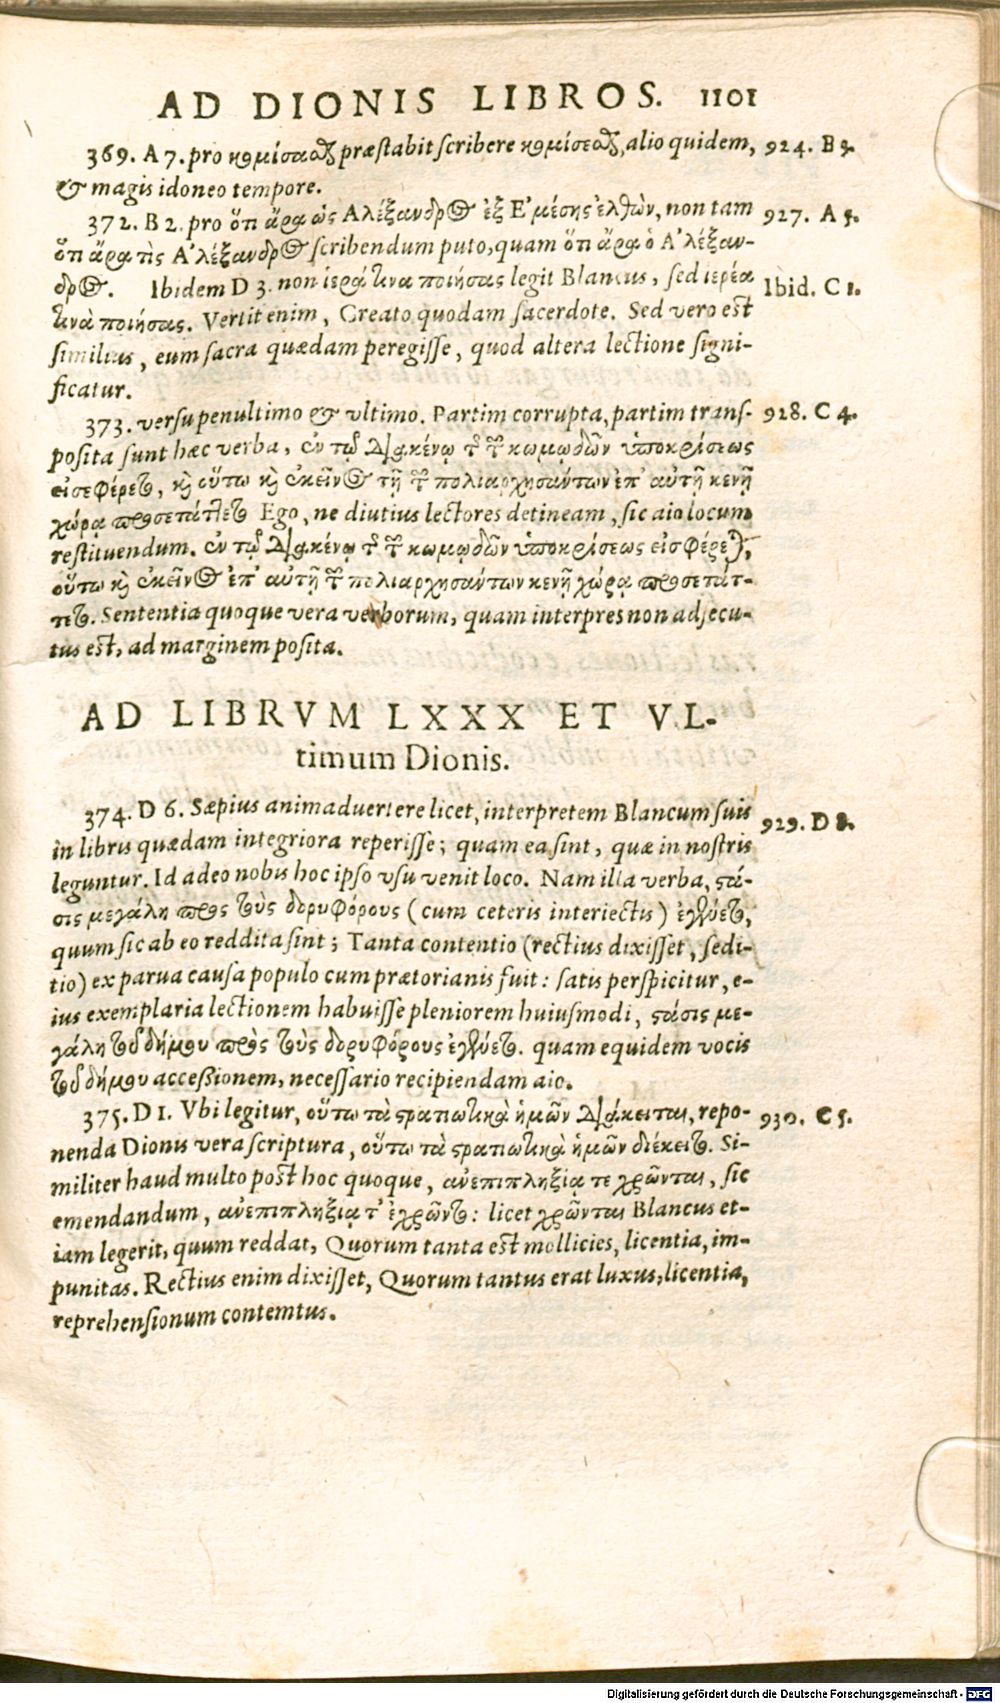 AD DIONIS LIBROS. 1101
369. A 7. pro κομίσασθαι præstabit scribere κομίσεσθαι, alio quidem, 924. B 9.
& magis idoneo tempore.
372. B 2. pro ὅτι ἄρα ὡς Αλέξανδρος ἐξ Ε'μέσης ἐλθὼν, non tam 927. A 5.
ὅτι ἄρα τὶς Α'λέξανδρος scribendum puto, quam ὅτι ἄρα ὁ Α'λέξαν-
δρος. Ibidem D 3. non ἱερά τινα ποιήσας legit Blancus, sed ιερέα Ibid. C 1.
τινὰ ποιήσας. Vertit enim, Creato quodam sacerdote. Sed vero est
similius, eum sacra quædam peregisse, quod altera lectione signi-
ficatur.
373. versu penultimo & vltimo. Partim corrupta, partim trans- 928. C 4.
posita sunt hæc verba, ἐν τῷ διακένῳ τὸ τῶν κωμῳδῶν ὑποκρίσεως
εἰσεφέρετο, καὶ οὕτω καὶ ἐκεῖνος τῇ τῶν πολιαρχησάντων ἐπ' αὐτῇ κενῇ
χώρᾳ προσετάττετο Ego, ne diutius lectores detineam, sic aio locum
restituendum. ἐν τῷ διακένῳ τὸ τῶν κωμῳδῶν ὑποκρίσεως εἰσφέρεται,
οὕτω καὶ ἐκεῖνος ἐπ' αὐτῇ τῶν πολιαρχησάντων κενῇ χώρᾳ προσετάτ-
τετο. Sententia quoque vera verborum, quam interpres non adsecu-
tus est, ad marginem posita.
AD LIBRVM LXXX ET VL-
timum Dionis.
374. D 6. Sæpius animaduertere licet, interpretem Blancum suis 929. D 8.
in libris quædam integriora reperisse; quam ea sint, quæ in nostris
leguntur. Id adeo nobis hoc ipso vsu venit loco. Nam illa verba, στά-
σις μεγάλη πρὸς τοὺς δορυφόρους (cum ceteris interiectis) ἐγένετο,
quum sic ab eo reddita sint; Tanta contentio (rectius dixisset, sedi-
tio) ex parua causa populo cum prætorianis fuit: satis perspicitur, e-
ius exemplaria lectionem habuisse pleniorem huiusmodi, στάσις με-
γάλη τοῦ δήμου πρὸς τοὺς δορυφόρους ἐγένετο. quam equidem vocis
τοῦ δήμου accessionem, necessario recipiendam aio.
375. D 1. Vbi legitur, οὕτω τὰ στρατιωτικὰ ἡμῶν διάκειται, repo- 930. C 5.
nenda Dionis vera scriptura, οὕτω τὰ στρατιωτικὰ ἡμῶν διέκειτο. Si-
militer haud multo post hoc quoque, ἀνεπιπληξίᾳ τε χρῶνται, sic
emendandum, ἀνεπιπληξίᾳ τ' ἐχρῶντο: licet χρῶνται Blancus et-
iam legerit, quum reddat, Quorum tanta est mollicies, licentia, im-
punitas. Rectius enim dixisset, Quorum tantus erat luxus, licentia,
reprehensionum contemtus.
Digitalisierung gefördert durch die Deutsche Forschungsgemeinschaft - DFG